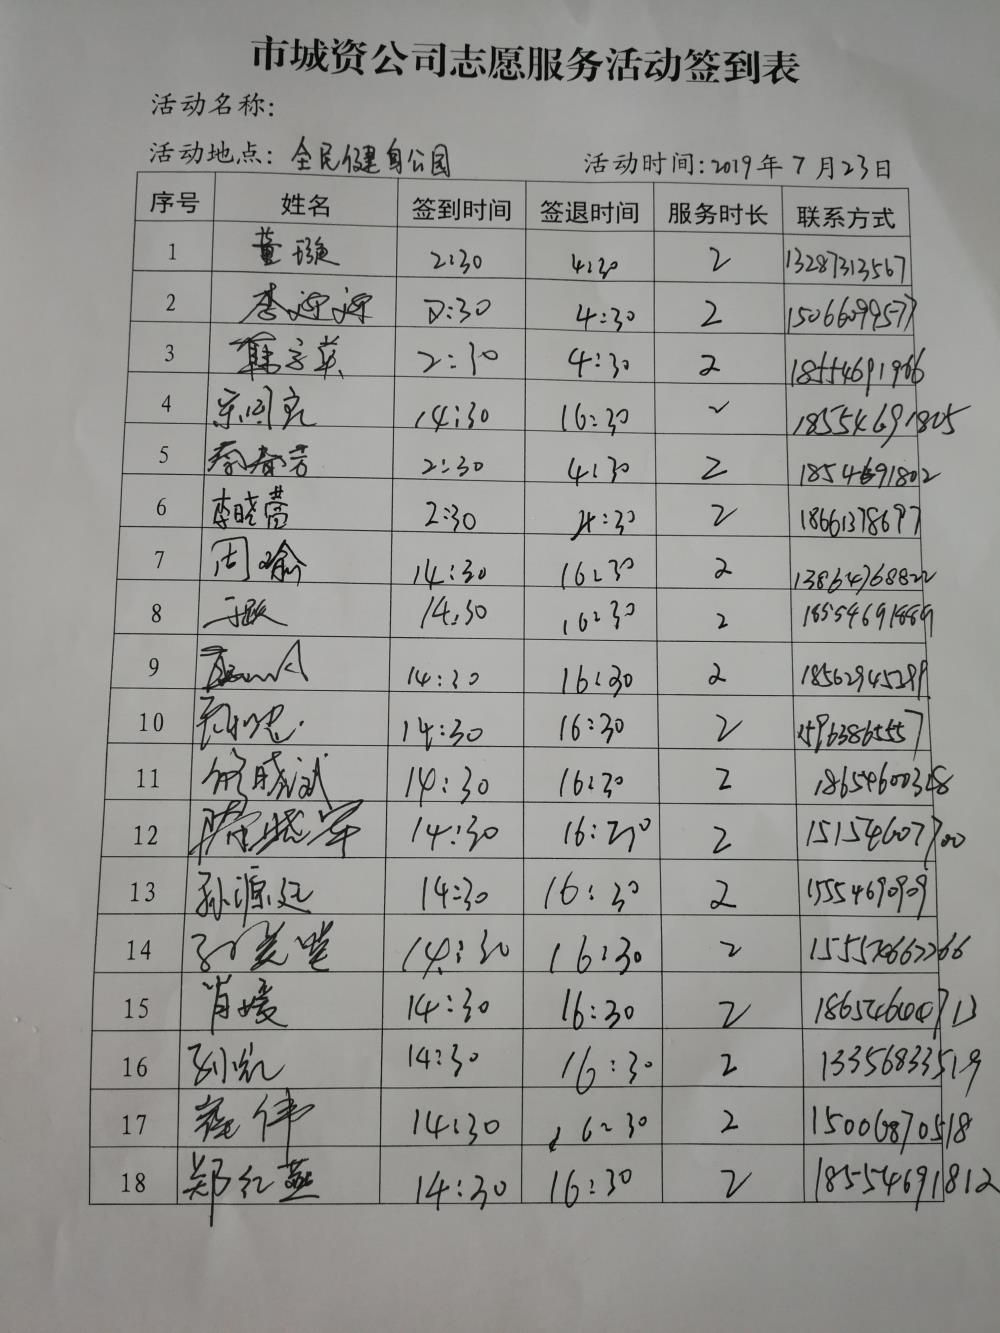 市城资公司志愿服务活动签到表
活动名称:
活动地点: 全民健身公园 活动时间:2019年7月23日
序号 姓名 签到时间 签退时间 服务时长 联系方式
1 董璇 2:30 4:30 2 13287313567
2 李 2:30 4:30 2 15066099577
3 2:30 4:30 2 18554691966
4 宋 14:30 16:30 2 18554691805
5 蔡春芳 2:30 4:30 2 1854691802
6 李晓蕾 2:30 4:30 2 18661378697
7 周喻 14:30 16:30 2 13864768822
8 14:30 16:30 2 18554691889
9 14:30 16:30 2 18562945299
10 14:30 16:30 2 15963865557
11 晓斌 14:30 16:30 2 18654600328
12 晓军 14:30 16:30 2 15154607700
13 孙源远 14:30 16:30 2 15554690909
14 14:30 16:30 2
15 肖媛 14:30 16:30 2 18654600713
16 孙凯 14:30 16:30 2 13356833519
17 伟 14:30 16:30 2 15006870518
18 郑红燕 14:30 16:30 2 18554691812